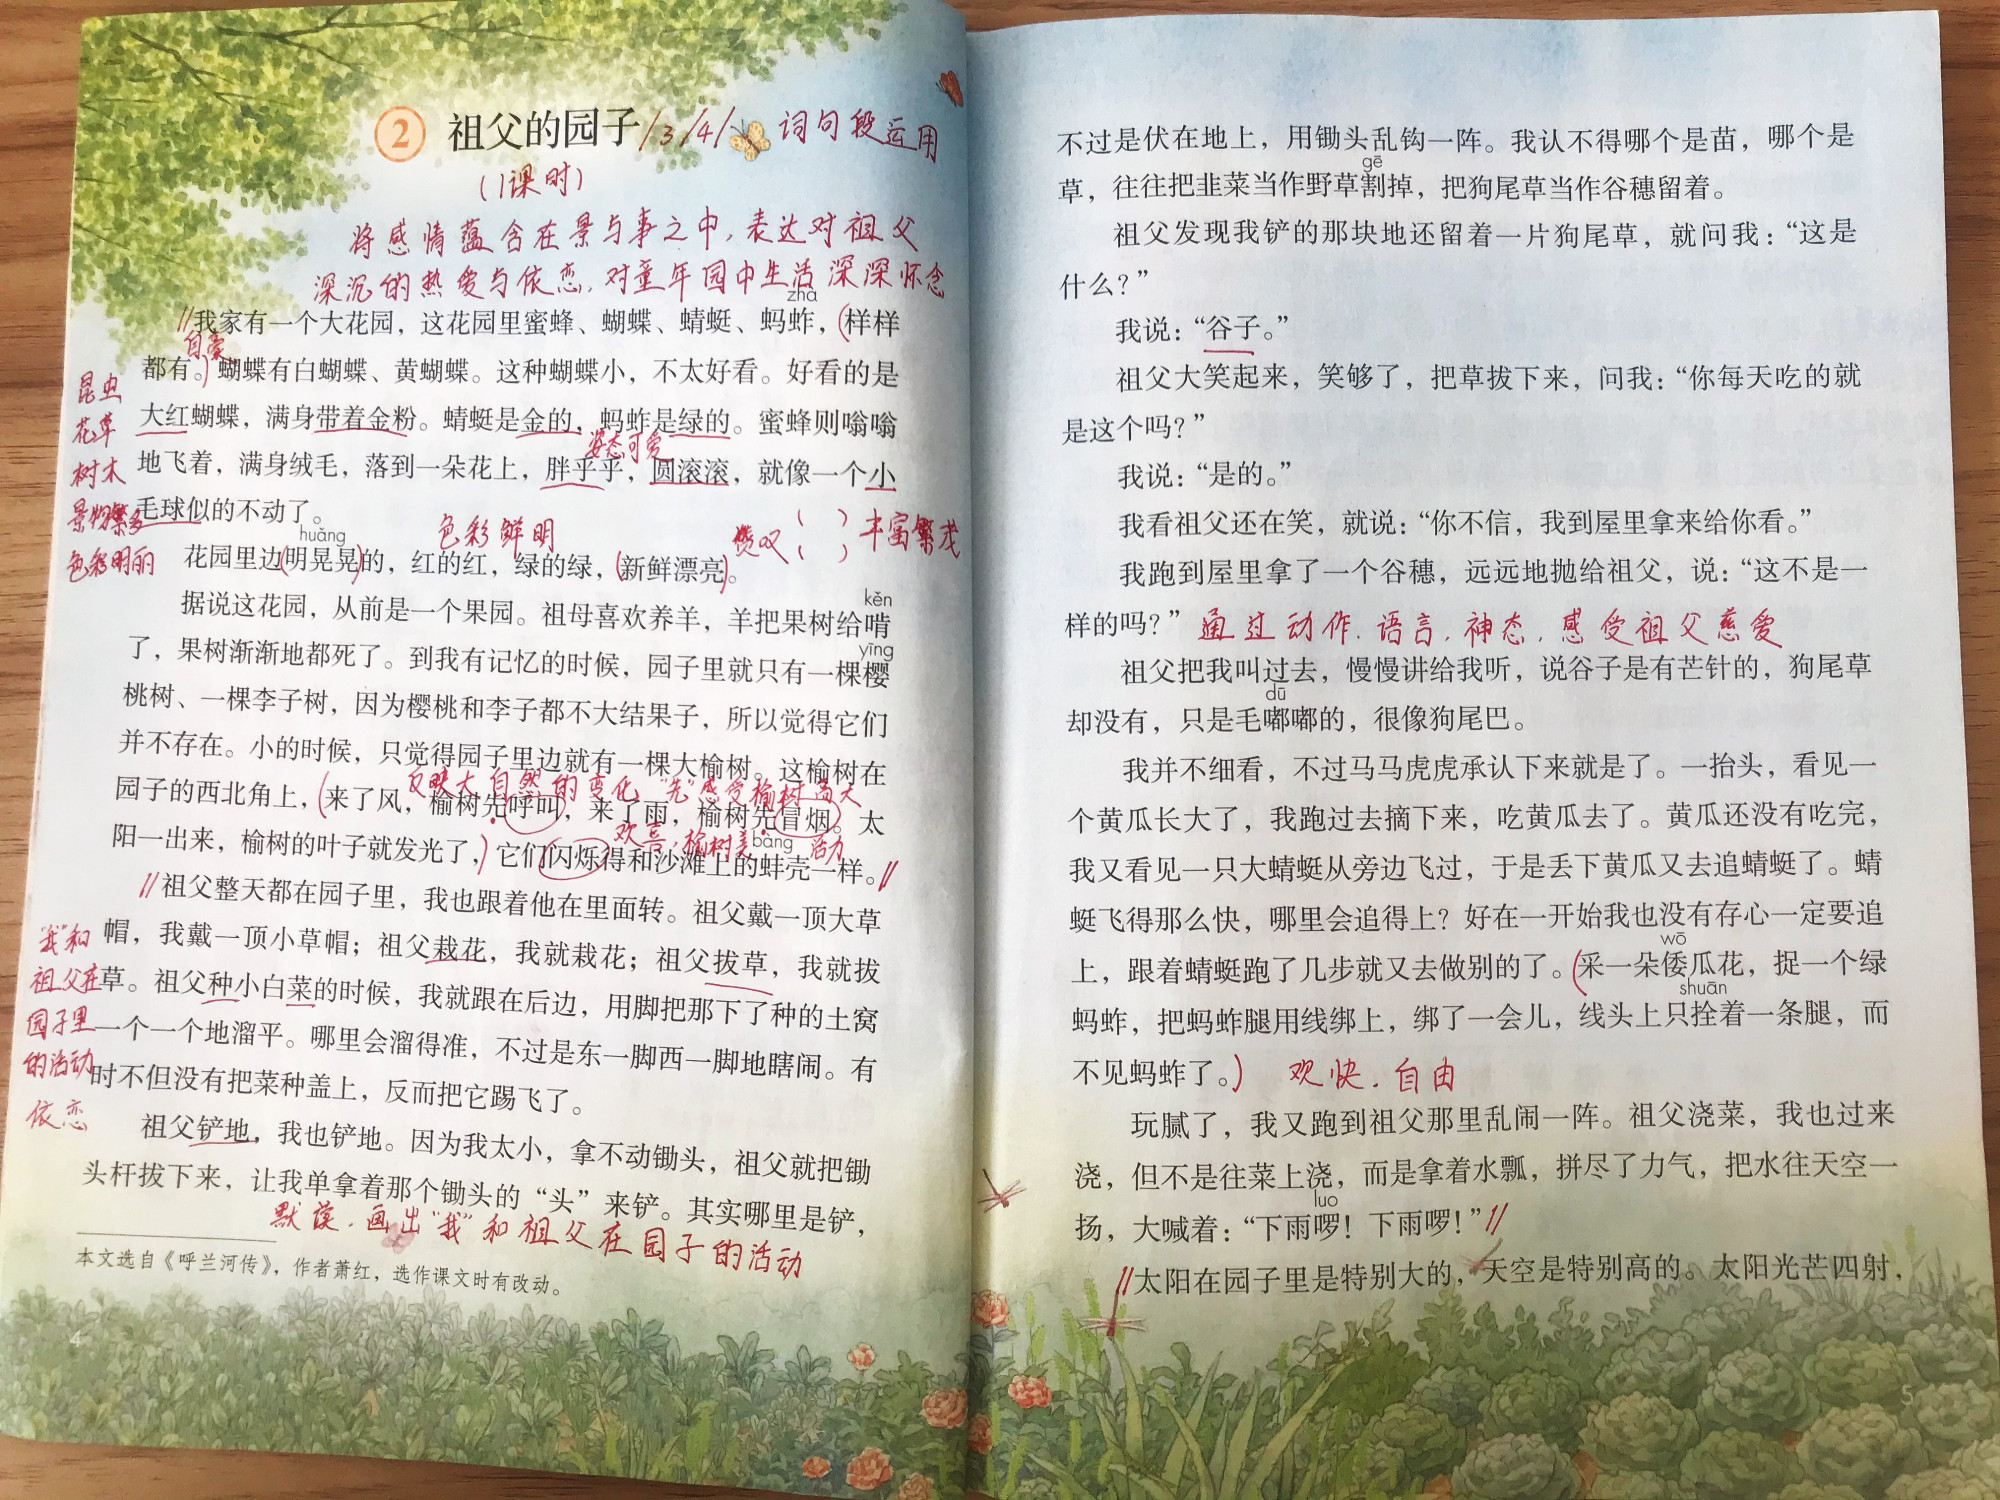 2 祖父的园子/3/4/ 词句段运用
(1课时)
将感情蕴含在景与事之中,表达对祖父
深沉的热爱与依恋,对童年园中生活深深怀念
zhà
//我家有一个大花园，这花园里蜜蜂、蝴蝶、蜻蜓、蚂蚱，(样样
自豪
都有。)蝴蝶有白蝴蝶、黄蝴蝶。这种蝴蝶小，不太好看。好看的是
昆虫
大红蝴蝶，满身带着金粉。蜻蜓是金的，蚂蚱是绿的。蜜蜂则嗡嗡
花草
姿态可爱
地飞着，满身绒毛，落到一朵花上，胖乎乎，圆滚滚，就像一个小
树木
毛球似的不动了。
景物繁多
huǎng
色彩鲜明
赞叹 ( ) ( ) 丰富繁茂
花园里边(明晃晃)的，红的红，绿的绿，(新鲜漂亮)。
色彩明丽
kěn
据说这花园，从前是一个果园。祖母喜欢养羊，羊把果树给啃
yīng
了，果树渐渐地都死了。到我有记忆的时候，园子里就只有一棵樱
桃树、一棵李子树，因为樱桃和李子都不大结果子，所以觉得它们
并不存在。小的时候，只觉得园子里边就有一棵大榆树。这榆树在
反映大自然的变化 “先”感受榆树高大
园子的西北角上，(来了风，榆树先呼叫，来了雨，榆树先冒烟。太
欢喜,榆树美 活力
bàng
阳一出来，榆树的叶子就发光了，)它们闪烁得和沙滩上的蚌壳一样。//
//祖父整天都在园子里，我也跟着他在里面转。祖父戴一顶大草
帽，我戴一顶小草帽；祖父栽花，我就栽花；祖父拔草，我就拔
“我”和
草。祖父种小白菜的时候，我就跟在后边，用脚把那下了种的土窝
祖父在
一个一个地溜平。哪里会溜得准，不过是东一脚西一脚地瞎闹。有
园子里
时不但没有把菜种盖上，反而把它踢飞了。
的活动
依恋
祖父铲地，我也铲地。因为我太小，拿不动锄头，祖父就把锄
头杆拔下来，让我单拿着那个锄头的“头”来铲。其实哪里是铲，
默读,画出“我”和祖父在园子的活动
本文选自《呼兰河传》，作者萧红，选作课文时有改动。
4
不过是伏在地上，用锄头乱钩一阵。我认不得哪个是苗，哪个是
gē
草，往往把韭菜当作野草割掉，把狗尾草当作谷穗留着。
祖父发现我铲的那块地还留着一片狗尾草，就问我：“这是
什么？”
我说：“谷子。”
祖父大笑起来，笑够了，把草拔下来，问我：“你每天吃的就
是这个吗？”
我说：“是的。”
我看祖父还在笑，就说：“你不信，我到屋里拿来给你看。”
我跑到屋里拿了一个谷穗，远远地抛给祖父，说：“这不是一
样的吗？” 通过动作,语言,神态,感受祖父慈爱
祖父把我叫过去，慢慢讲给我听，说谷子是有芒针的，狗尾草
dū
却没有，只是毛嘟嘟的，很像狗尾巴。
我并不细看，不过马马虎虎承认下来就是了。一抬头，看见一
个黄瓜长大了，我跑过去摘下来，吃黄瓜去了。黄瓜还没有吃完，
我又看见一只大蜻蜓从旁边飞过，于是丢下黄瓜又去追蜻蜓了。蜻
蜓飞得那么快，哪里会追得上？好在一开始我也没有存心一定要追
wō
上，跟着蜻蜓跑了几步就又去做别的了。(采一朵倭瓜花，捉一个绿
shuān
蚂蚱，把蚂蚱腿用线绑上，绑了一会儿，线头上只拴着一条腿，而
不见蚂蚱了。) 欢快,自由
玩腻了，我又跑到祖父那里乱闹一阵。祖父浇菜，我也过来
浇，但不是往菜上浇，而是拿着水瓢，拼尽了力气，把水往天空一
luo
扬，大喊着：“下雨啰！下雨啰！”//
//太阳在园子里是特别大的，天空是特别高的。太阳光芒四射，
5